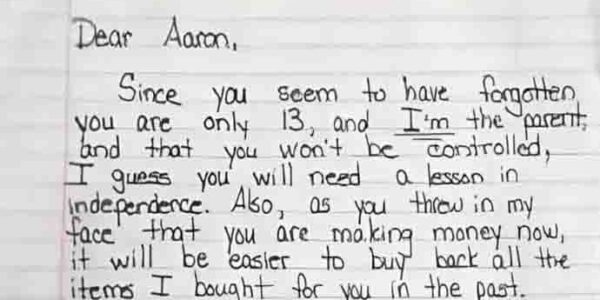 Dear Aaron,
Since you seem to have forgotten
you are only 13, and I'm the parent,
and that you won't be controlled,
I guess you will need a lesson in
independence. Also, as you threw in my
face that you are making money now,
it will be easier to buy back all the
items I bought for you in the past.